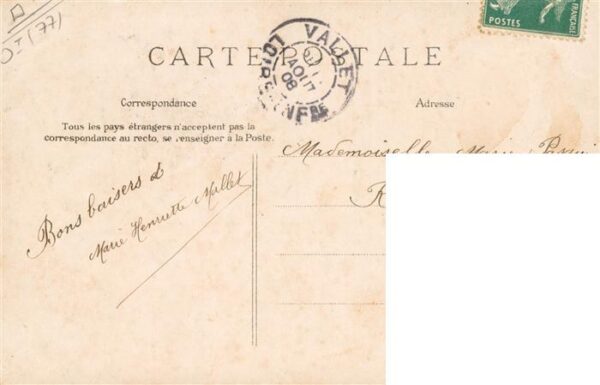 (77)
POSTES
FRANÇAISE
CARTE POSTALE
VALLET
LOIRE INFRE
AOUT
08
Correspondance
Adresse
Tous les pays étrangers n'acceptent pas la
correspondance au recto, se renseigner à la Poste.
Mademoiselle Marie
Bons baisers d
Marie Henriette Mallet